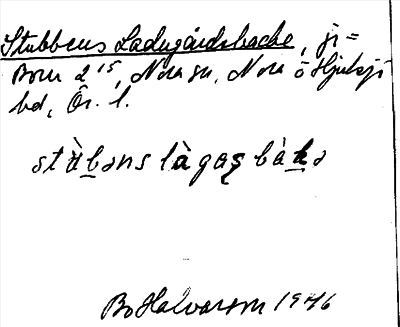 Stubbens Ladugårdsbacke, ji=
Born 2¹⁵, Nora sn, Nora o Hjulsjö
bd, Ör. l.
stὰb̲əns làgaʂbàk̲ə
Bo Halvarson 1946